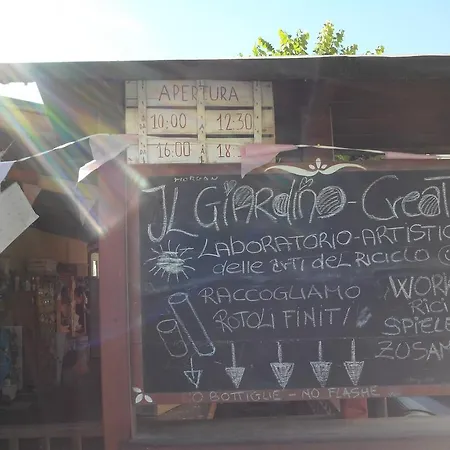 APERTURA
10:00 12:30
16:00
MORGAN
IL GIARDINO-CREAT
LABORATORIO-ARTISTIC
delle ARTI DEL RICICLO
RACCOGLIAMO
ROTOLI FINITI
WORK
RICI
SPIELE
ZUSAM
NO BOTTIGLIE - NO FLASHE